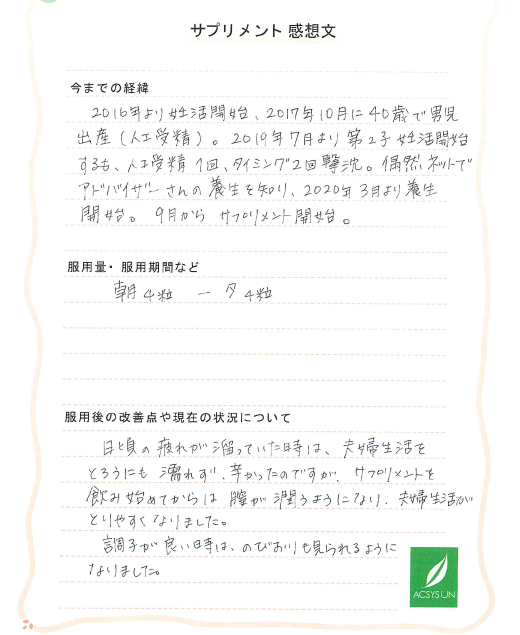 サプリメント 感想文
今までの経緯
2016年より妊活開始、2017年10月に40歳で男児
出産（人工受精）。2019年7月より第2子妊活開始
するも、人工受精1回、タイミング2回撃沈。偶然ネットで
アドバイザーさんの養生を知り、2020年3月より養生
開始。9月からサプリメント開始。
服用量・服用期間など
朝4粒 ー 夕4粒
服用後の改善点や現在の状況について
日頃の疲れが溜っていた時は、夫婦生活を
とろうにも濡れず、辛かったのですが、サプリメントを
飲み始めてからは膣が潤うようになり、夫婦生活が
とりやすくなりました。
調子が良い時は、のびおりも見られるように
なりました。
ACSYSUN